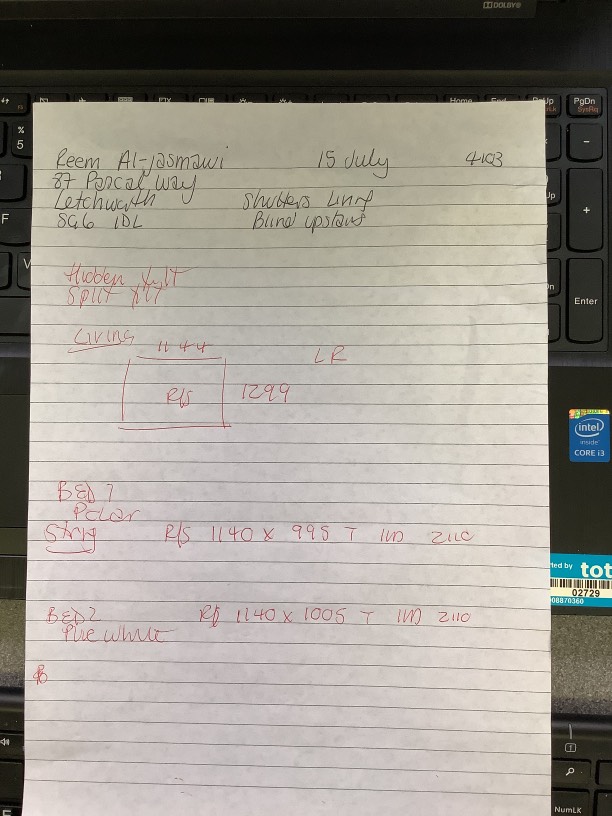 Reem Al-Jasmawi 15 July 4103
87 Pascal Way
Letchworth Shutters Living
SG6 1DL Blind upstairs
Hidden
Split
Living
1144
LR
R/S 1299
BED 1
Polar
String R/S 1140 x 995 T 2110
BED 2 R/S 1140 x 1005 T 2110
Pure White
DOLBY
Home End PgUp PgDn
SysRq
%
5
-
+
F
V
Enter
intel
inside
CORE i3
ted by tot
02729
08870360
NumLK